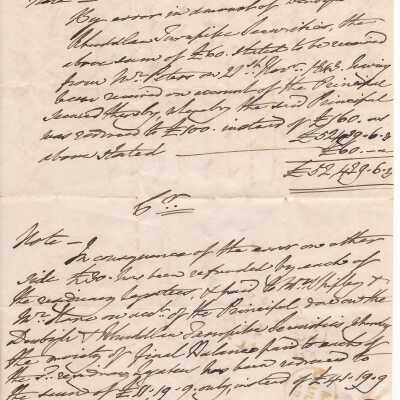 Note -
By error in amount of Denbigh &
Rhuddlan Turnpike Securities, the
above sum of £60 stated to be received
from Mr. on 21st Novr. having
been received on account of the Principal
secured thereby, whereby the said Principal
was reduced to £100 instead of £160 as
above stated
£52,489.6.3
£60.-.-
£52,429.6.3
Cr.
Note - In consequence of the error on other
side £30 has been refunded by each of
the residuary legatees,
on acct. of the Principal due on the
Denbigh & Rhuddlan Turnpike Securities whereby
the moiety of final Balance paid to each of
the sd. residuary legatees has been reduced to
the sum of £11.19.9 only, instead of £41.19.9